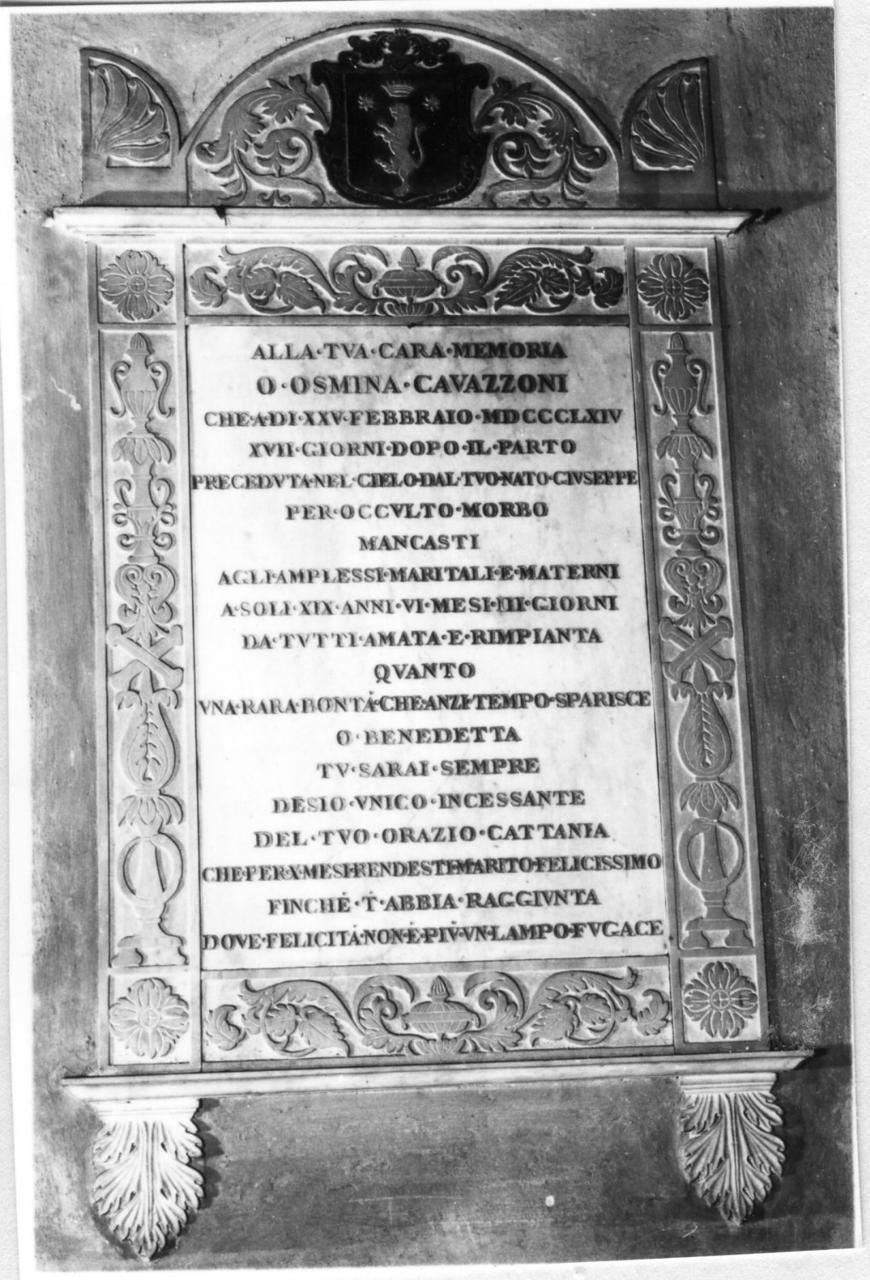 ALLA·TVA·CARA·MEMORIA
O·OSMINA·CAVAZZONI
CHE·A·DI·XXV·FEBBRAIO·MDCCCLXIV
XVII·GIORNI·DOPO·IL·PARTO
PRECEDVTA·NEL·CIELO·DAL·TVO·NATO·GIVSEPPE
PER·OCCVLTO·MORBO
MANCASTI
AGLI·AMPLESSI·MARITALI·E·MATERNI
A·SOLI·XIX·ANNI·VI·MESI·III·GIORNI
DA·TVTTI·AMATA·E·RIMPIANTA
QVANTO
VNA·RARA·BONTÀ·CHE·ANZI·TEMPO·SPARISCE
O·BENEDETTA
TV·SARAI·SEMPRE
DESIO·VNICO·INCESSANTE
DEL·TVO·ORAZIO·CATTANIA
CHE·PER·X·MESI·RENDESTI·MARITO·FELICISSIMO
FINCHÈ·T'·ABBIA·RAGGIVNTA
DOVE·FELICITÀ·NON·È·PIÙ·VN·LAMPO·FVGACE